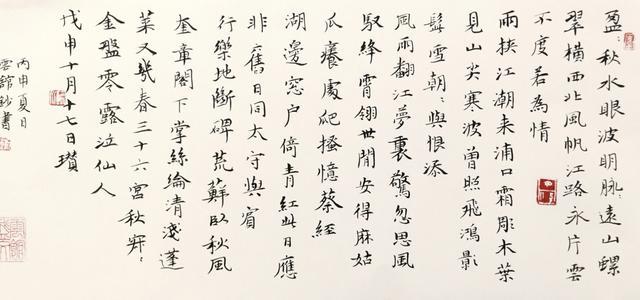 盈〻秋水眼波明脉〻遠山螺
翠橫西北風帆江路永片雲
不度若為情
雨挾江潮来浦口霜彫木葉
見山尖寒波曾照飛鴻影
髩雪朝〻與恨添
風雨翻江夢裏驚忽思風
馭絳霄翎世閒安得麻姑
爪癢處爬搔憶蔡經
湖邊窓户倚青紅此日應
非舊日同太守與賓
行樂地斷碑荒蘚臥秋風
奎章閣下掌絲綸清淺蓬
萊又幾春三十六宮秋寂〻
金盤零露泣仙人
戊申十月十七日瓚
丙申夏日
雲館鈔書